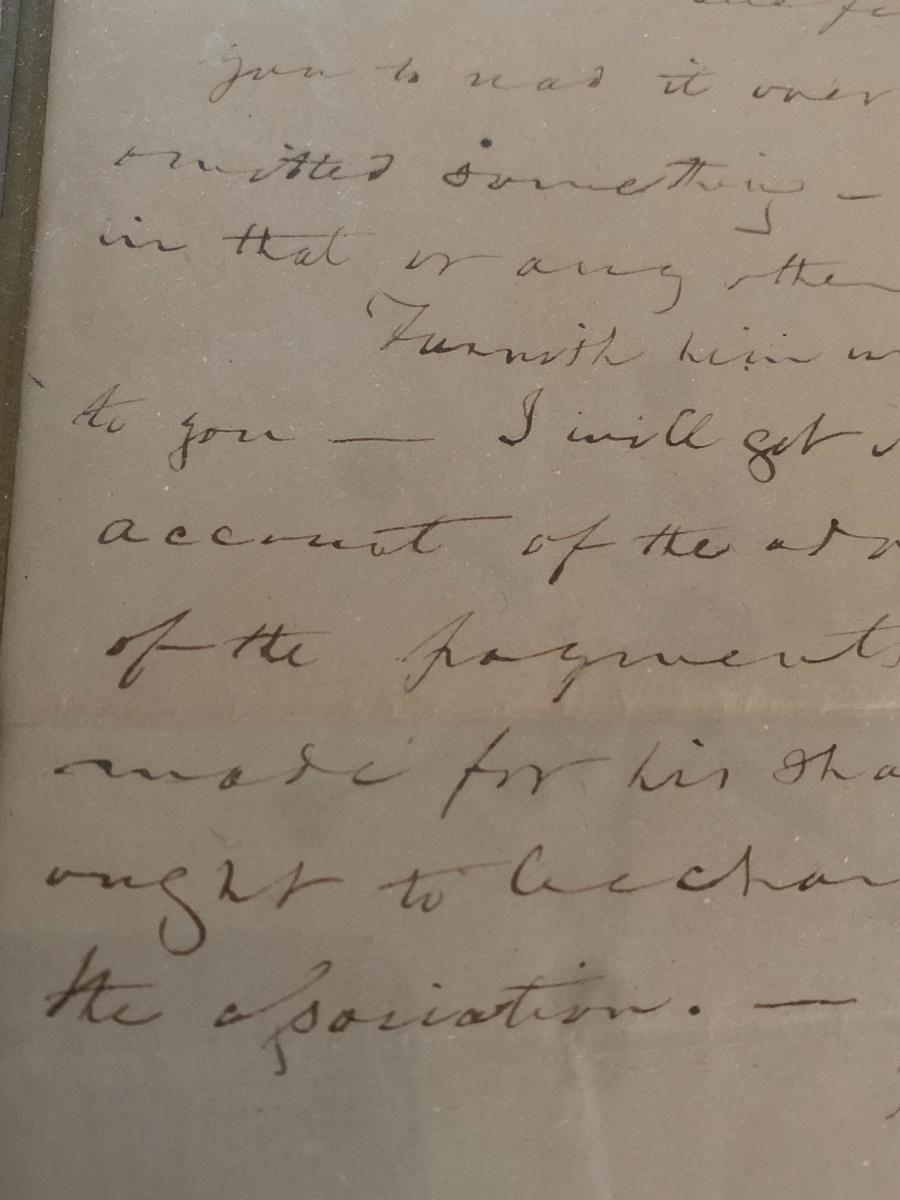 you to read it over
omitted something —
in that or any other
Furnish him
to you — I will get
account of the
of the payments
made for his
ought to be
the association. —